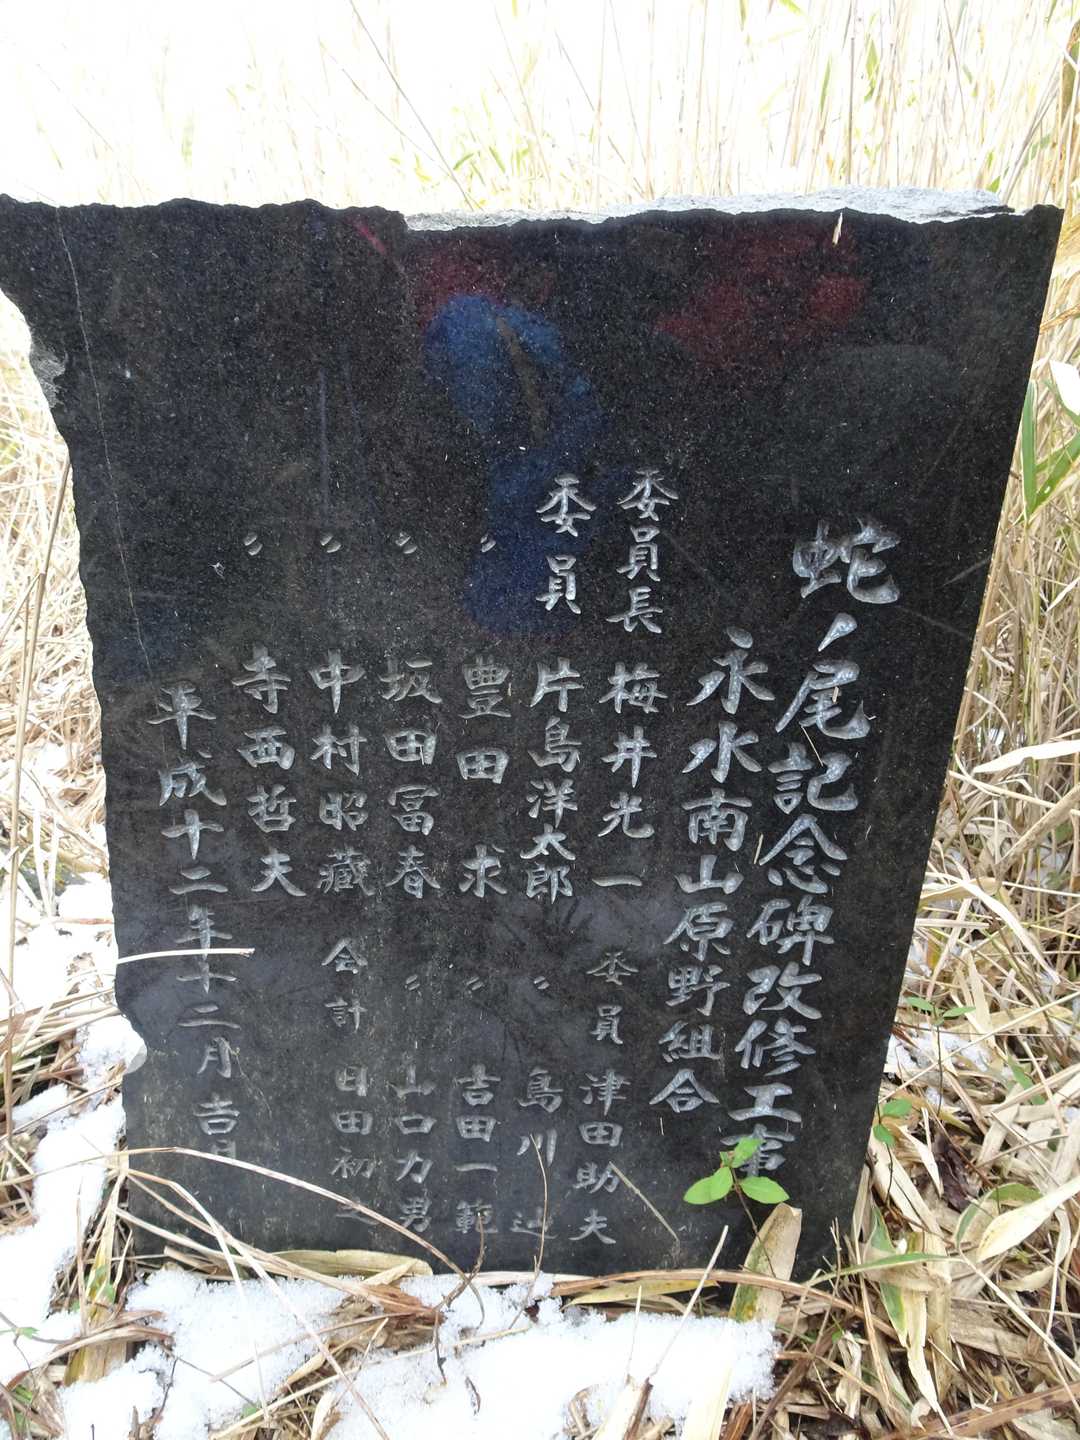 蛇ノ尾記念碑改修工事
永水南山原野組合
委員長 梅井光一 委員 津田助夫
委員 片島洋太郎 〃 島川
〃 豊田 求 〃 吉田一範
〃 坂田冨春 〃 山口力男
〃 中村昭藏 会計 日田初
〃 寺西哲夫
平成十二年十二月吉日